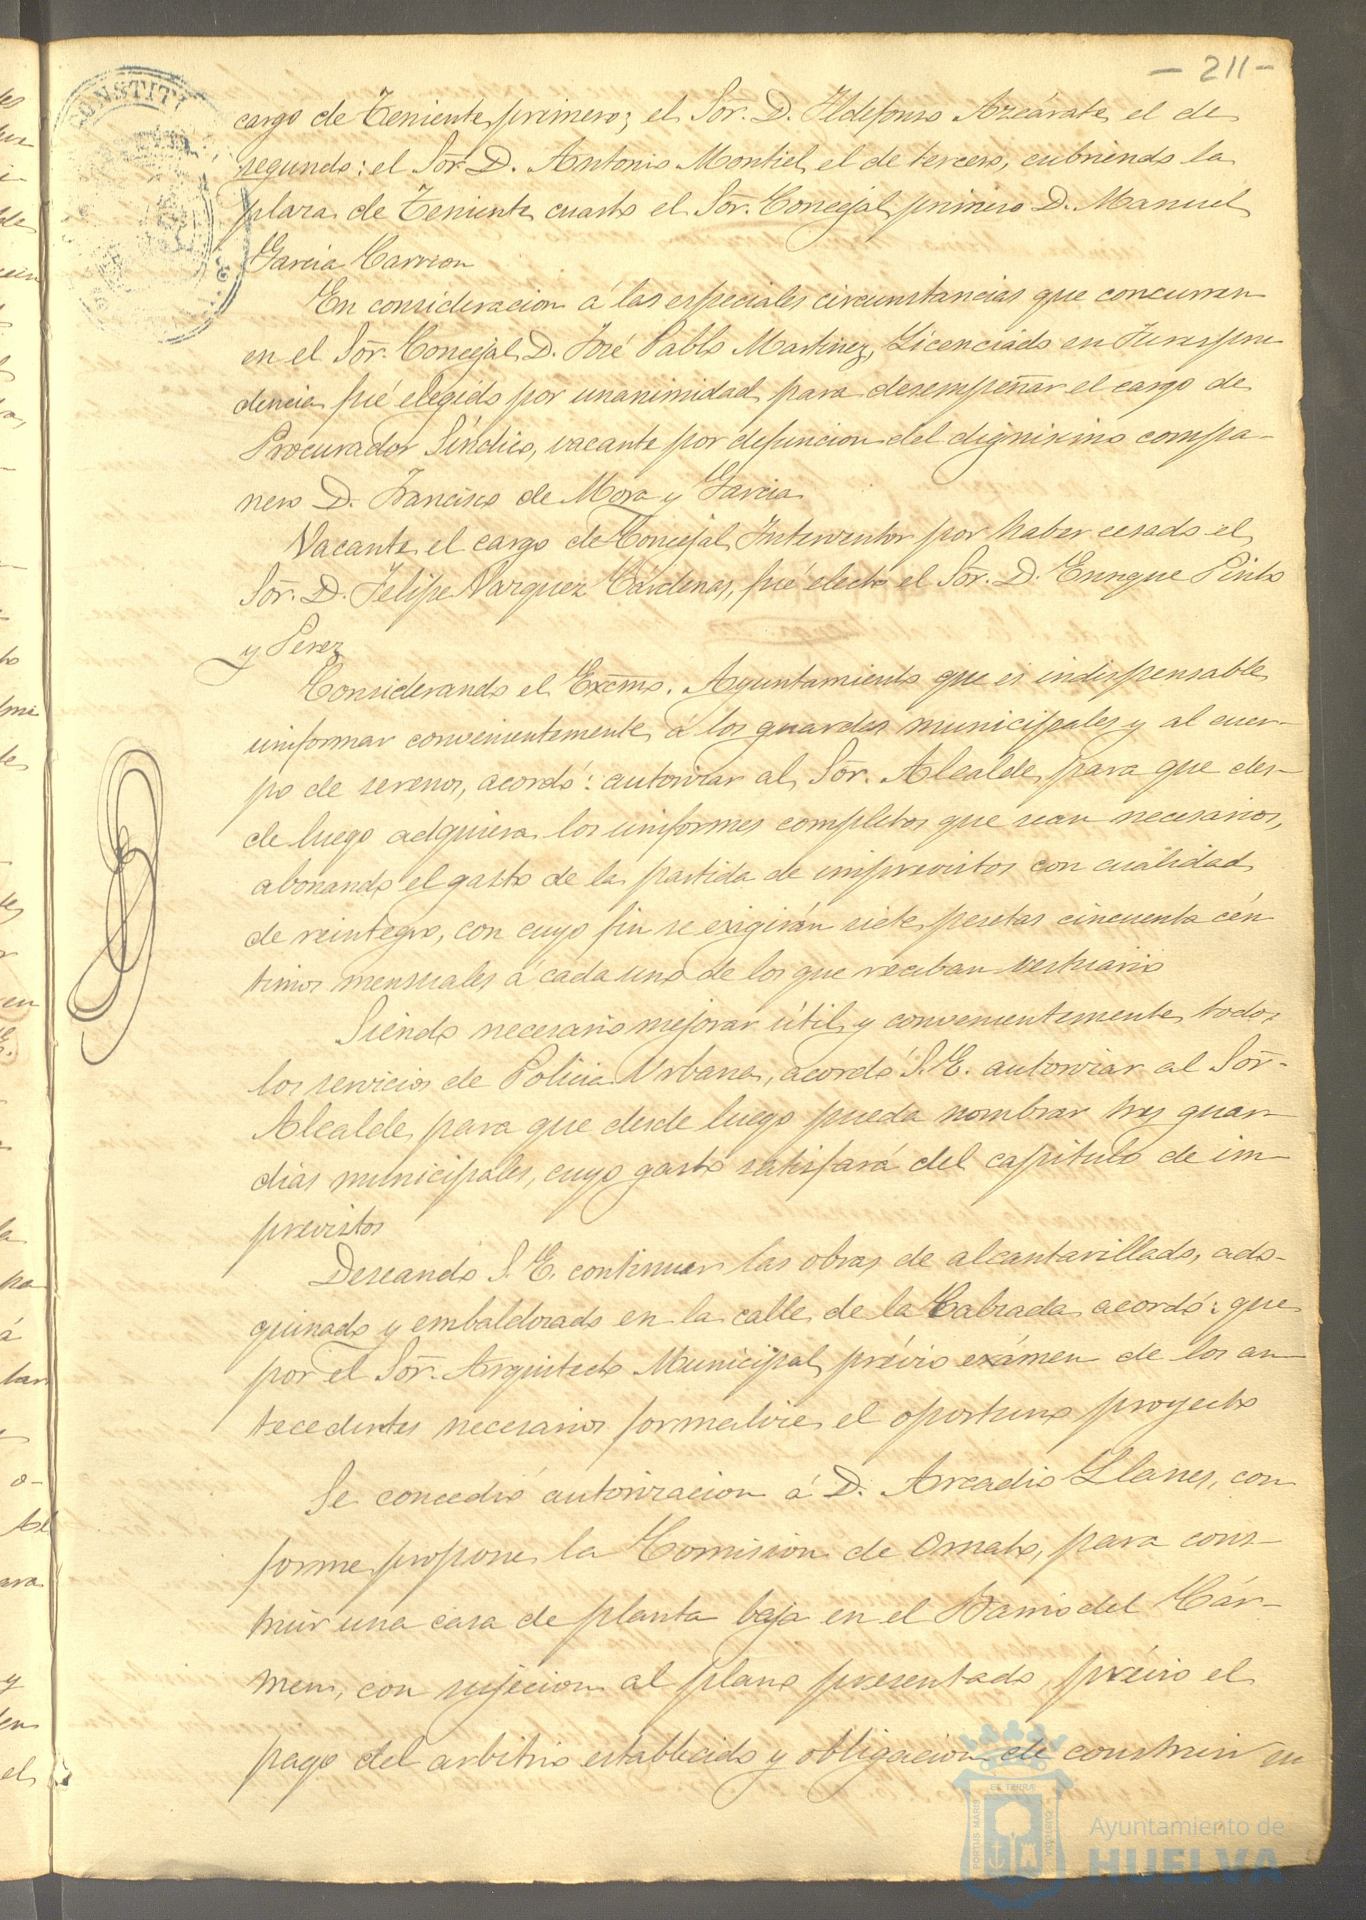 - 211 -
CONSTITU
cargo de Teniente primero; el Sor. D. Ildefonso Azcárate, el de
segundo: el Sor. D. Antonio Montiel, el de tercero, cubriendo la
plaza de Teniente cuarto el Sor. Concejal primero D. Manuel
Garcia Carrion
En consideracion á las especiales circunstancias que concurren
en el Sor. Concejal D. José Pablo Martinez, Licenciado en Jurispru
dencia, fué elegido por unanimidad para desempeñar el cargo de
Procurador Síndico, vacante por defuncion del dignisimo compa-
nero D. Francisco de Mora y Garcia
Vacante el cargo de Concejal Interventor por haber cesado el
Sor. D. Felipe Vazquez Cárdenas, fué electo el Sor. D. Enrique Pinto
y Perez
Considerando el Excmo. Ayuntamiento que es indispensable
uniformar convenientemente á los guardas municipales y al cuer-
po de serenos, acordó: autorizar al Sor. Alcalde para que des-
de luego adquiera los uniformes completos que sean necesarios,
abonando el gasto de la partida de imprevistos con cualidad
de reintegro, con cuyo fin se exigirán siete pesetas cincuenta cén
timos mensuales á cada uno de los que reciban vestuario
Siendo necesario mejorar útil y convenientemente todos
los servicios de Policia Urbana, acordó S. E. autorizar al Sor.
Alcalde, para que desde luego pueda nombrar tres guar
dias municipales, cuyo gasto satisfará del capitulo de im-
previstos
Deseando S. E. continuar las obras de alcantarillado, ado-
quinado y embaldosado en la calle de la Calzada acordó: que
por el Sor. Arquitecto Municipal, prévio exámen de los an-
tecedentes necesarios formalice el oportuno proyecto
Se concedió autorizacion á D. Arcadio Llanes, con
forme propone la Comision de Ornato, para cons-
truir una casa de planta baja en el Barrio del Cár-
men, con sujecion al plano presentado, prévio el
pago del arbitrio establecido y obligacion de construir en
PORTUS MARIS
ET TERRÆ
CUSTODIA
Ayuntamiento de
HUELVA